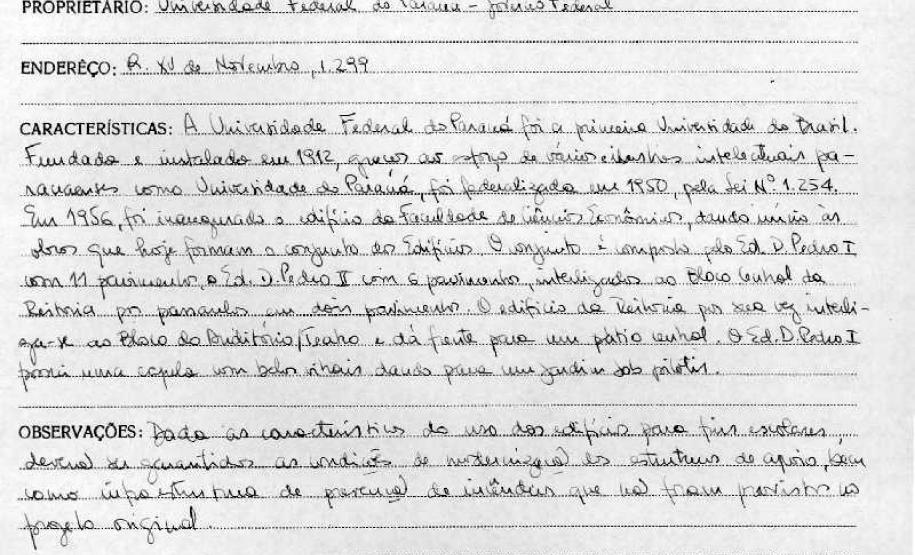 PROPRIETÁRIO: Universidade Federal do Paraná - Governo Federal
ENDERÊÇO: R. XV de Novembro, 1.299
CARACTERÍSTICAS: A Universidade Federal do Paraná foi a primeira Universidade do Brasil.
Fundada e instalada em 1912, graças ao esforço de vários ilustres intelectuais pa-
ranaenses como Universidade do Paraná, foi federalizada em 1950, pela Lei Nº 1.254.
Em 1956, foi inaugurado o edifício da Faculdade de Ciências Econômicas, dando início às
obras que hoje formam o conjunto dos Edifícios. O conjunto é composto pelo Ed. D. Pedro I
com 11 pavimentos, o Ed. D. Pedro II com 6 pavimentos, interligados ao Bloco Central da
Reitoria por passarelas em dois pavimentos. O edifício da Reitoria por sua vez interli-
ga-se ao Bloco do Auditório/Teatro e dá frente para um pátio central. O Ed. D. Pedro I
possui uma capela com belos vitrais dando para um jardim sob pilotis.
OBSERVAÇÕES: Dada as características do uso dos edifícios para fins escolares
deverá ser garantidas as condições de modernização das estruturas de apoio, bem
como infraestrutura de prevenção de incêndios que não foram previstas no
projeto original.